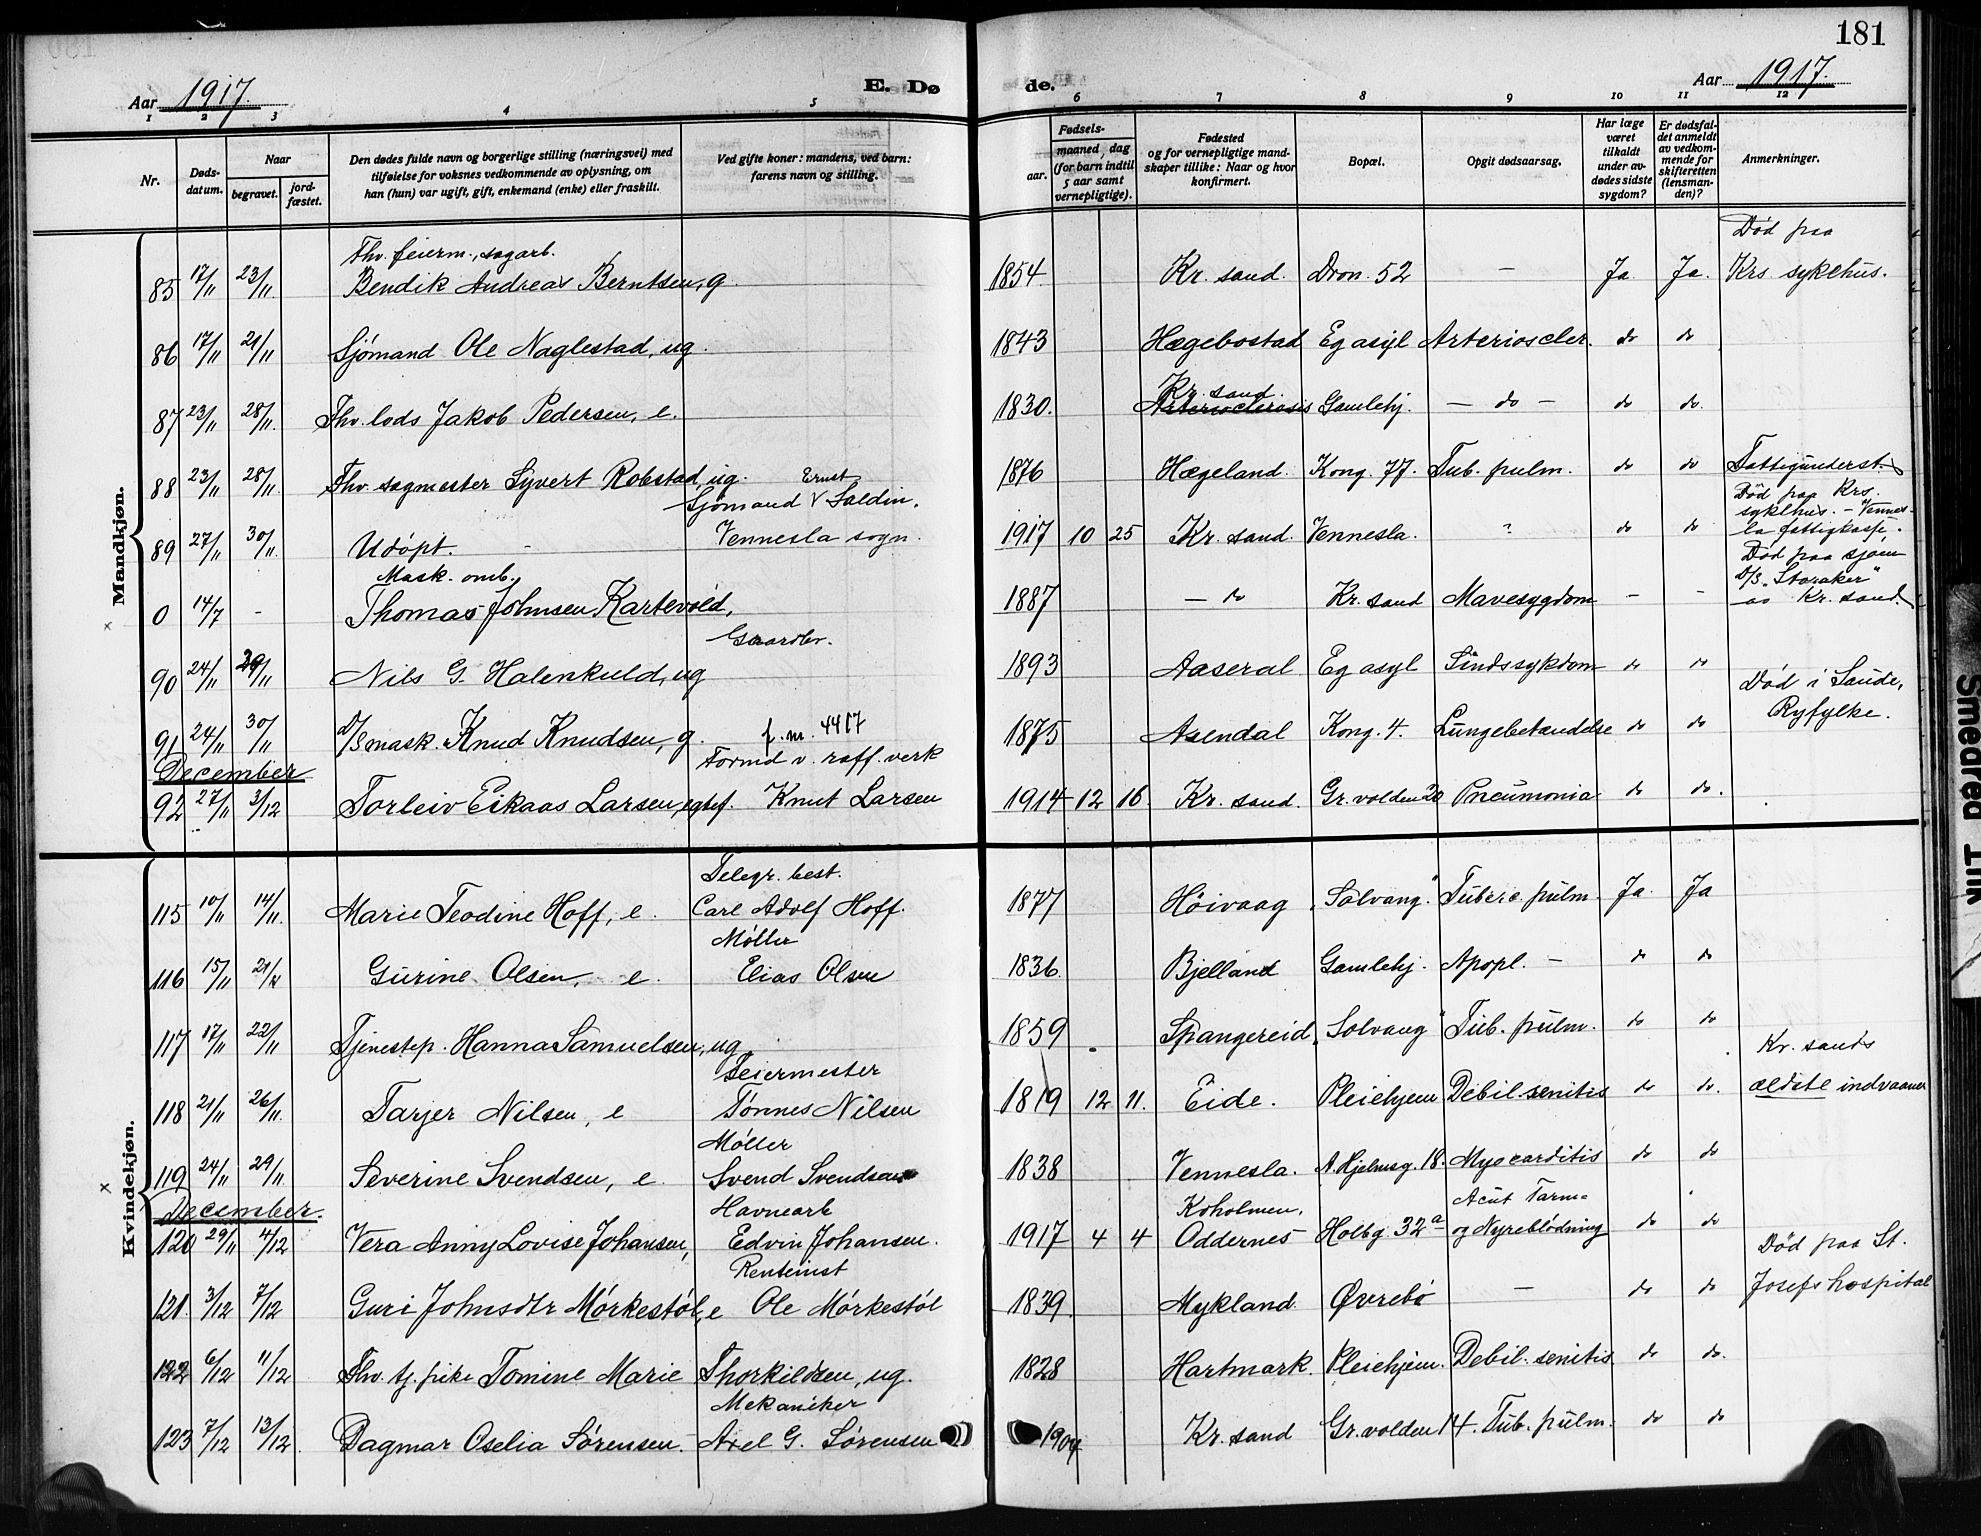 181
Aar 1917. E. Dø de. Aar 1917.
1 2 3 4 5 6 7 8 9 10 11 12
Nr.
Døds-
datum.
Naar
begravet.
jord-
fæstet.
Den dødes fulde navn og borgerlige stilling (næringsvei) med
tilføielse for voksnes vedkommende av oplysning, om
han (hun) var ugift, gift, enkemand (enke) eller fraskilt.
Ved gifte koner: mandens, ved barn:
farens navn og stilling.
Fødsels-
aar.
maaned, dag
(for barn indtil
5 aar samt
vernepligtige).
Fødested
og for vernepligtige mand-
skaper tillike: Naar og hvor
konfirmert.
Bopæl.
Opgit dødsaarsag.
Har læge
været
tilkaldt
under av-
dødes sidste
sygdom?
Er dødsfal-
det anmeldt
av vedkom-
mende for
skifteretten
(lensman-
den)?
Anmerkninger.
Mandkjøn.
Fhv. feierm., sagarb. Død paa
85 17/11 23/11 Bendik Andreas Berntsen, g 1854. Kr. sand. Dron. 52 — Ja Ja. Krs sykehus.
86 17/11 21/11 Sjømand Ole Naglestad, ug. 1843 Hægebostad Eg asyl Arterioscler. do do
Kr. sand.
87 23/11 28/11 Fhv. lods Jakob Pedersen, e. 1830. Arterioclerosis Gamlehj. — do — do do.
88 23/11 28/11 Fhv sagmester Syvert Robstad, ug. 1876 Hægeland. Kong. 77. Tub. pulm. do do Fattigunderst.
Ernst
Sjømand V Saldin. Død paa Krs.
sykehus. — Vennes-
89 27/11 30/11 Udøpt. Vennesla sogn. 1917 10 25 Kr. sand. Vennesla. ? do do la fattigkasse.
Mask. omb. Død paa sjøen
D/S „Storaker"
0 14/7 - Thomas Johnsen Kartevold, 1887 — do Kr. sand Mavesygdom - - av Kr. sand.
Gaardbr.
90 24/11 29/11 Nils G. Halenkuld, ug 1893 Aaseral Eg asyl Sindssykdom do do
Død i Saude,
91 24/11 30/11 D/S mask. Knud Knudsen, g. f. nr. 4417 1875 Arendal Kong. 4. Lungebetændelse do do Ryfylke.
December Formd v. raff. verk
92 27/11 3/12 Torleiv Eikaas Larsen, egtef. Knut Larsen 1914 12 16 Kr. sand. Gr. volden 20 Pneumonia do do.
Kvindekjøn.
Telegr. best.
115 10/11 14/11. Marie Teodine Hoff, e. Carl Adolf Hoff. 1877 Höivaag „Solvang" Tuberc. pulm. Ja. Ja
Møller
116 15/11 21/11 Gurine Olsen, e. Elias Olsen 1836. Bjelland Gamlehj. Apopl. — do do
117 17/11 22/11 Tjenestep. Hanna Samuelsen, ug 1859 Spangereid „Solvang" Tub. pulm. do do
Feiermester Kr. sands
118 21/11 26/11. Tarjer Nilsen, e Tønnes Nilsen 1819 12 11. Eide. Pleiehjem Debil. senitis do do. ældste indvaaner
Møller
119 24/11 29/11. Severine Svendsen, e. Svend Svendsen 1838 Vennesla. A. Hjelmsg. 18. Myocarditis do do
December. Havnearb Koholmen, Acut Tarm-
120 29/11 4/12 Vera Anny Lovise Johansen, Edvin Johansen. 1917 4 4 Oddernes Holbg. 32a og Nyreblödning do do
Renteinst Død paa St.
121. 3/12 7/12 Guri Johnsdtr Mörkestöl, e Ole Mörkestöl 1839. Mykland. Øvrebö — do do Josefs hospital
122 6/12 11/12 Fhv. tj. pike Tomine Marie Thorkildsen, ug. 1828 Hartmark. Pleiehjem. Debil. senitis do do.
Mekaniker
123 7/12 13/12. Dagmar Oselia Sørensen. Axel G. Sørensen 1904 Kr. sand Gr. volden 14. Tub. pulm. do do
Smeared Ink